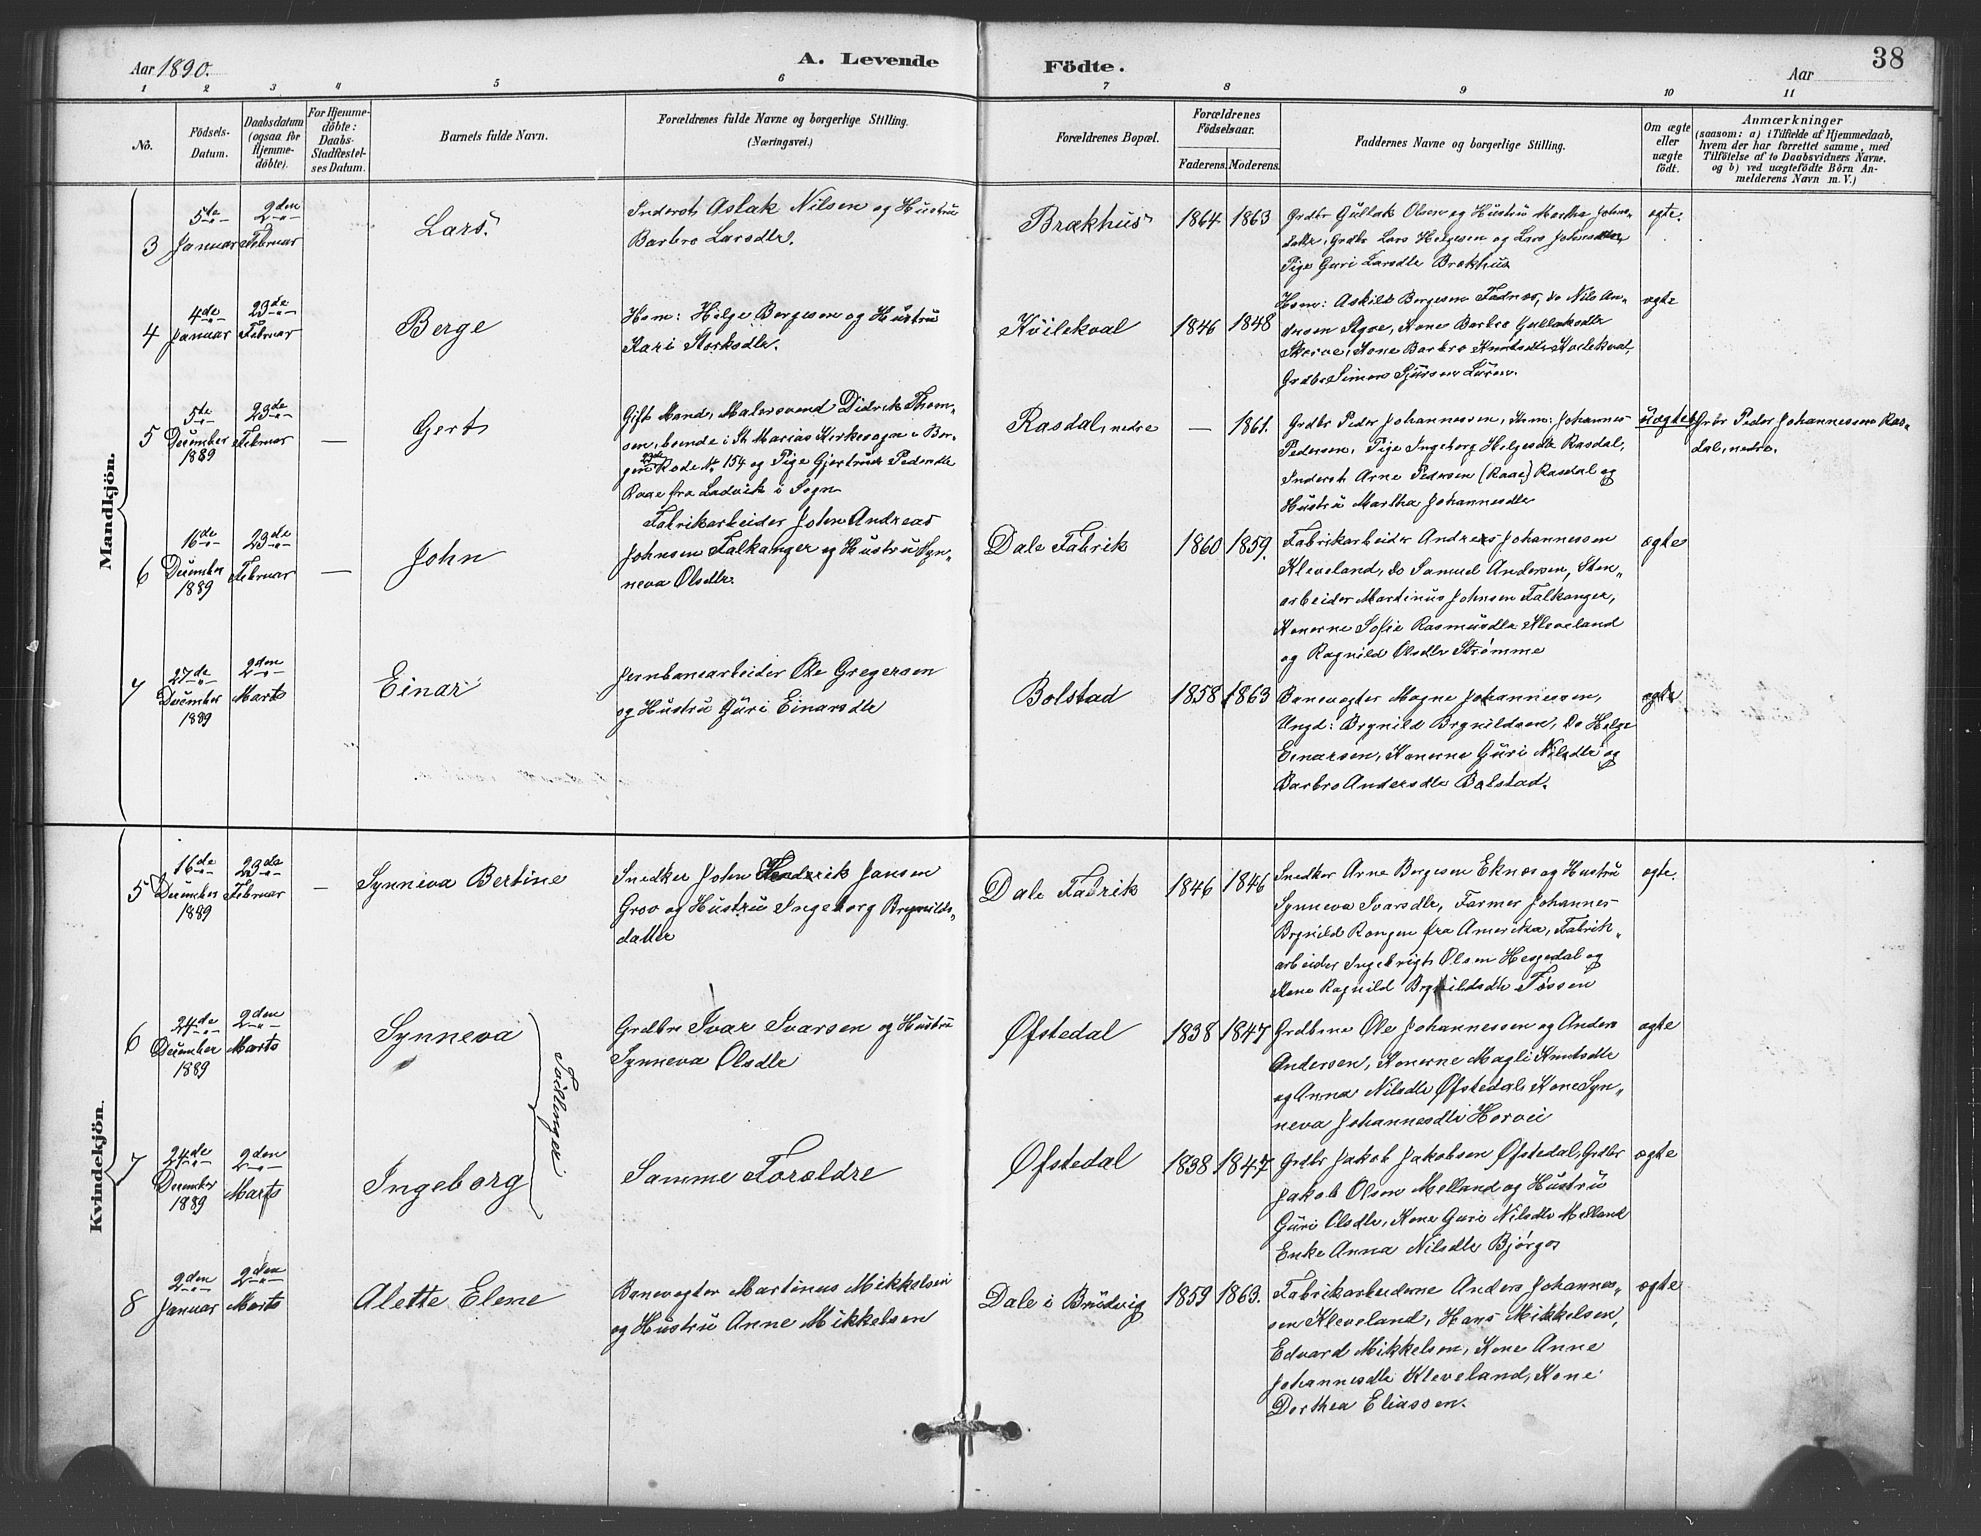 Aar 1890.
A. Levende Födte.
38
Aar
1 2 3 4 5 6 7 8 9 10 11
No.
Födsels-
Datum.
Daabsdatum
(ogsaa for
Hjemme-
döbte).
For Hjemme-
döbte:
Daabs-
Stadfæstel-
ses Datum.
Barnets fulde Navn.
Forældrenes fulde Navne og borgerlige Stilling.
(Næringsvei.)
Forældrenes Bopæl.
Forældrenes
Födselsaar.
Faderens. Moderens.
Faddernes Navne og borgerlige Stilling.
Om ægte
eller
uægte
födt.
Anmærkninger
(saasom: a) i Tilfælde af Hjemmedaab,
hvem der har forrettet samme, med
Tilföielse af to Daabsvidners Navne.
og b) ved uægtefödte Börn An-
melderens Navn m. V.)
Mandkjön.
3
5te
Januar
2den
Februar
Lars.
Inderst Aslak Nilsen og Hustru
Barbro Larsdtr.
Brækhus
1864 1863
Grdbr Gullak Olsen og Hustru Martha Johns-
datter, Grdbr Lars Helgesen og Lars Johnsen,
Pige Guri Larsdtr Brækhus
ægte.
4
4de
Januar
23de
Februar
Berge
Hsm: Helge Bergesen og Hustru
Kari Storksdtr.
Kvilekval
1846 1848
Hsm: Askild Bergesen Fadnes, do Nils An-
dersen Skjoe, Kone Barbro Gullaksdtr
Skorve, Kone Barbro Knutsdtr Kvilekval,
Grdbr Simon Sjursen Lüren.
ægte
5
5te
December
1889
23de
Februar
—
Gert
Gift Mand, Malersvend Didrik Thom-
sen, boende i St. Marias Kirkesogn i Ber-
gen 23de Rode No 154 og Pige Gjertrud Pedersdtr
Raae fra Ladvik i Sogn
Rasdal, nedre
— 1861.
Grdbr Peder Johannessen, Hsm: Johannes
Pedersen, Pige Ingeborg Helgesdtr Rasdal,
Inderst Arne Pedersen (Raae) Rasdal og
Hustru Martha Johannesdtr
uægte
Grbr Peder Johannessen Ras-
dal, nedre.
6
16de
December
1889
23de
Februar
—
John
Fabrikarbeider John Andreas
Johnsen Falkanger og Hustru Syn-
neva Olsdtr.
Dale Fabrik
1860 1859.
Fabrikarbeider Andreas Johannessen
Kleveland, do Samuel Andersen, Sten-
arbeider Martinus Johnsen Falkanger,
Konerne Sofie Rasmusdtr Kleveland
og Ragnild Olsdtr Strømme
ægte
7
27de
December
1889
2den
Marts
Einar
Jernbanearbeider Ole Gregersen
og Hustru Guri Einarsdtr
Bolstad
1858 1863
Banevogter Magne Johannessen,
Ungd: Brynild Brynildsen, Do Helge
Einarsen, Konerne Guri Nilsdtr og
Barbro Andersdtr Bolstad.
ægte
Kvindekjön.
5
16de
December
1889
23de
Februar
—
Synneva Bertine
Snedker John Hendrik Jansen
Groo og Hustru Ingeborg Brynilds-
datter
Dale Fabrik
1846 1846
Snedker Arne Bergesen Eknes og Hustru
Synneva Ivarsdtr, Farmer Johannes
Brynild Rongen fra Amerika, Fabrik-
arbeider Ingebrigt Olsen Hesjedal og
Kone Ragnild Brynildsdtr Fossen
ægte.
6
24de
December
1889
2den
Marts
Synneva
Tvillinger
Grdbr Ivar Ivarsen og Hustru
Synneva Olsdtr
Øfstedal
1838 1847
Grdbrne Ole Johannessen og Anders
Andersen, Konerne Magli Knutsdtr
og Anna Nilsdtr Øfstedal, Kone Syn-
neva Johannesdtr Horvei
ægte
7
24de
December
1889
2den
Marts
Ingeborg
Samme Forældre
Øfstedal
1838 1847
Grdbr Jakob Jakobsen Øfstedal, Grdbr
Jakob Olsen Melland og Hustru
Guri Olsdtr, Kone Guri Nilsdtr Melland
Enke Anna Nilsdtr Bjørgo
ægte
8
2den
Januar
2den
Marts
Alette Elene
Banevogter Martinus Mikkelsen
og Hustru Anne Mikkelsen
Dale i Brudvig
1859 1863.
Fabrikarbeiderne Anders Johannes-
sen Kleveland, Hans Mikkelsen,
Edvard Mikkelsen, Kone Anne
Johannesdtr Kleveland, Kone
Dorthea Eliassen.
ægte